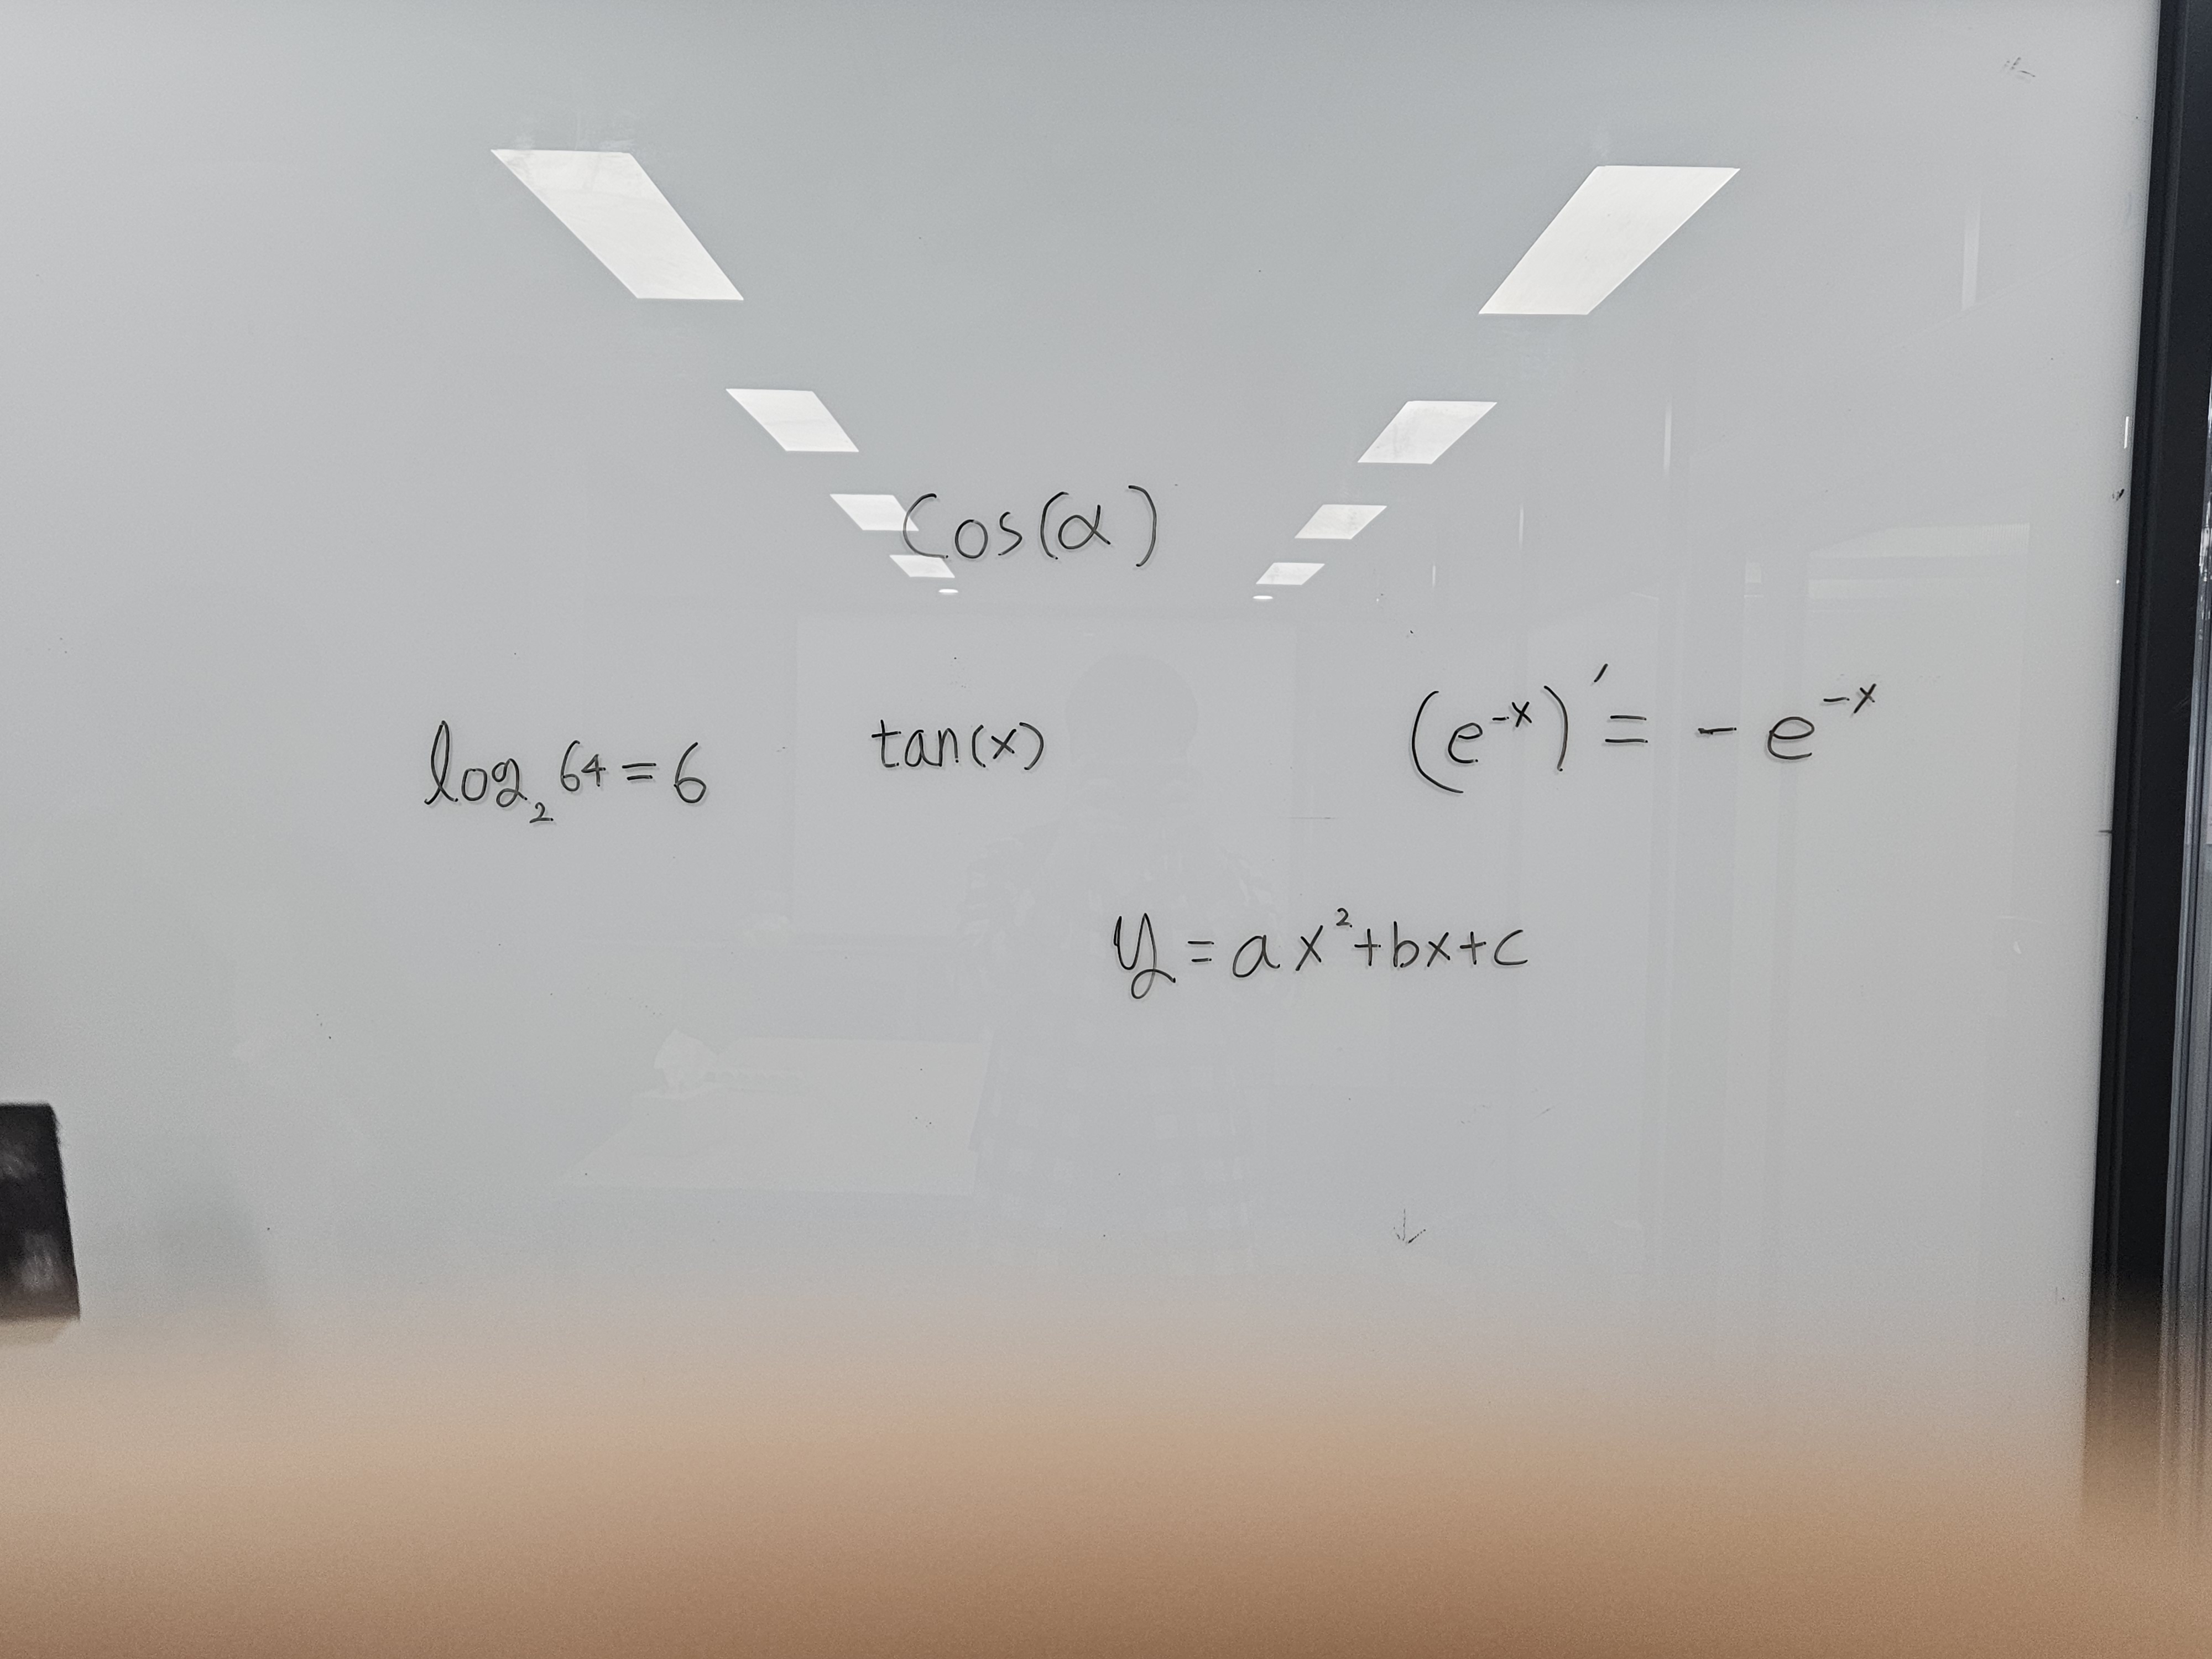 Cos(α)
log₂64=6
tan(x)
(e⁻ˣ)′= -e⁻ˣ
y=ax²+bx+c
↓